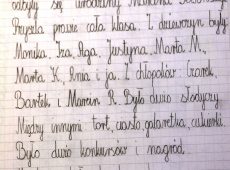 odbyły się urodziny
Przyszła prawie cała klasa. Z dziewczyn były:
Monika, Iza, Aga, Justyna, Marta M.,
Marta K, Ania i ja. Z chłopaków Czarek,
Bartek i Marcin R. Było dużo słodyczy.
Między innymi tort, ciasto, galaretka, cukierki.
Było dużo konkursów i nagród.